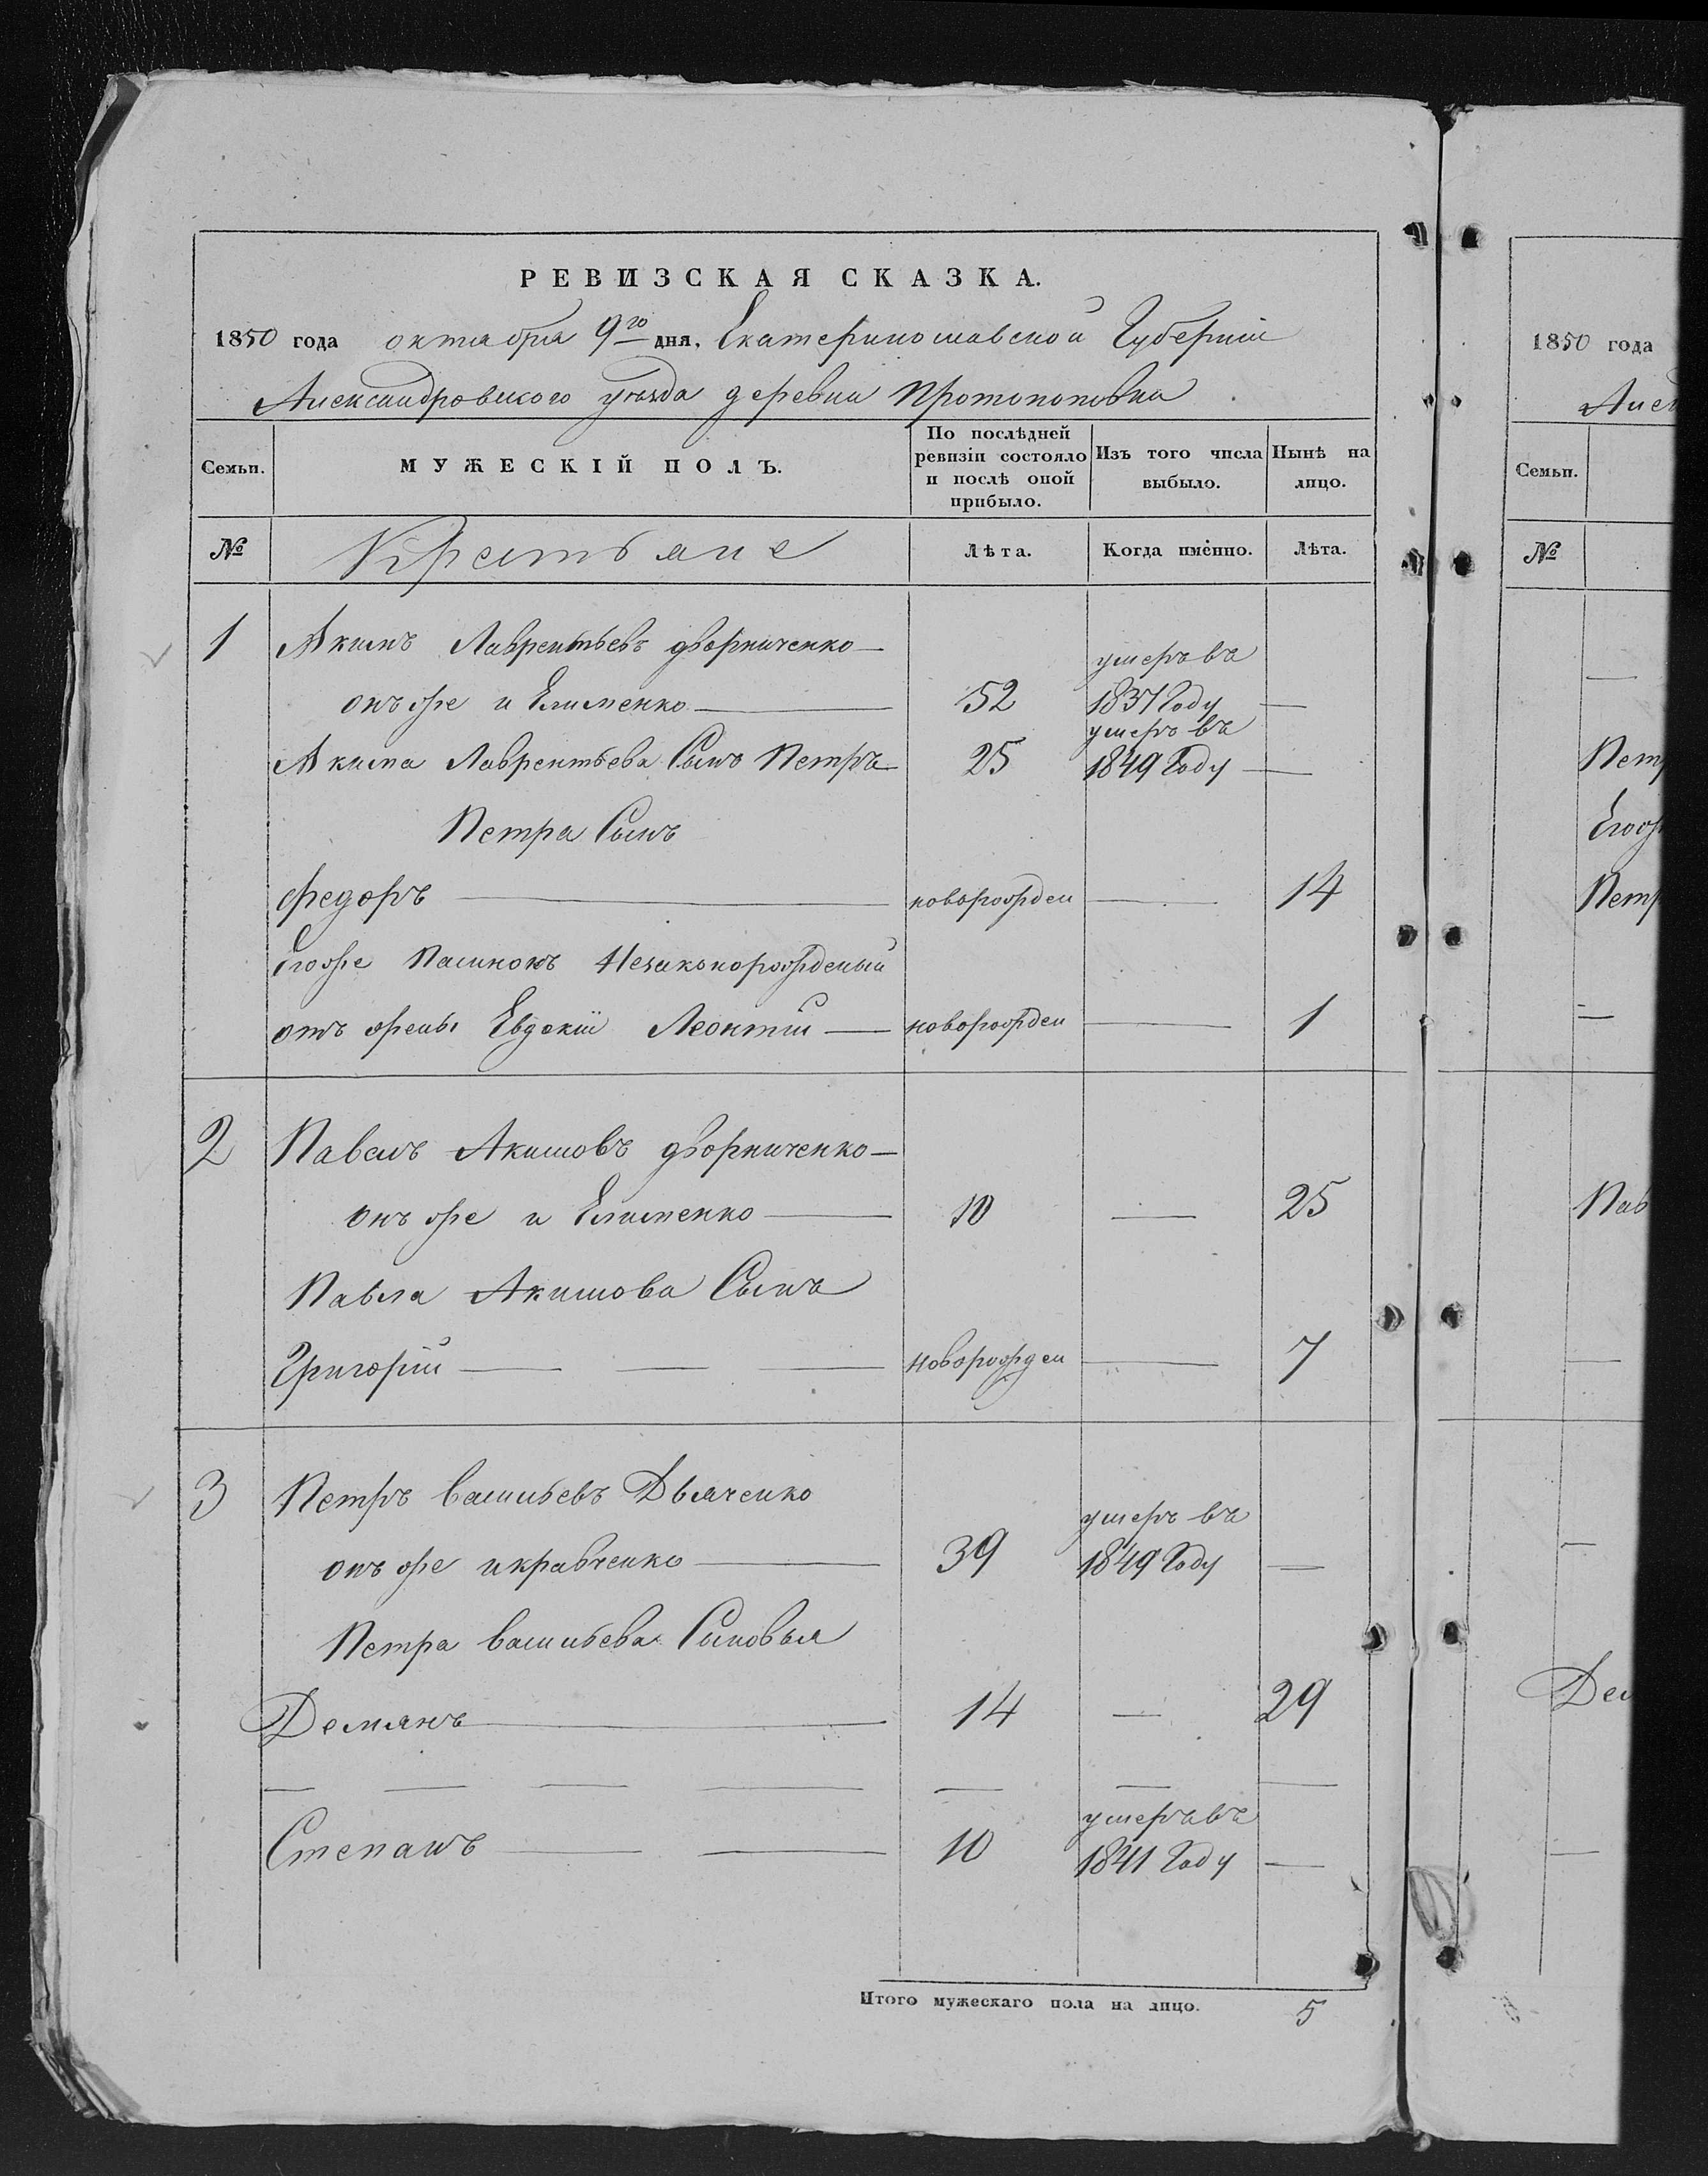 РЕВИЗСКАЯ СКАЗКА.
1850 года октября 9го дня, Екатеринославской Губерніи
Александровского уѣзда деревни Протопоповки
Семьи.
МУЖЕСКІЙ ПОЛЪ.
По послѣдней ревизіи состояло и послѣ оной прибыло.
Изъ того числа выбыло.
Нынѣ на лицо.
№
Крестьяне
Лѣта.
Когда имѣнно.
Лѣта.
1 Акимъ Лаврентьевъ дворниченко — умеръ въ
онъ же и Клименко — 52 1837 Году —
умеръ въ
Акима Лаврентьева Сынъ Петръ — 25 1849 Году —
Петра Сынъ
Федоръ — новорожден — 14
Егоже Пасинокъ Незаконорожденый
отъ жены Евдокіи Леонтій — новорожден — 1
2 Павелъ Акимовъ дворниченко —
онъ же и Клименко — 10 — 25
Павла Акимова Сынъ
Григорій — — — новорожден — 7
3 Петръ васильевъ Дьяченко умеръ въ
онъ же и кравченко — 39 1849 Году —
Петра васильева Сыновья
Демянъ — 14 — 29
— — — — — — —
умеръ въ
Степанъ — — 10 1841 Году —
Итого мужескаго пола на лицо. 5
1850 года
Алек
Семьи.
№
Петр
Егож
Петр
Пав
Дем